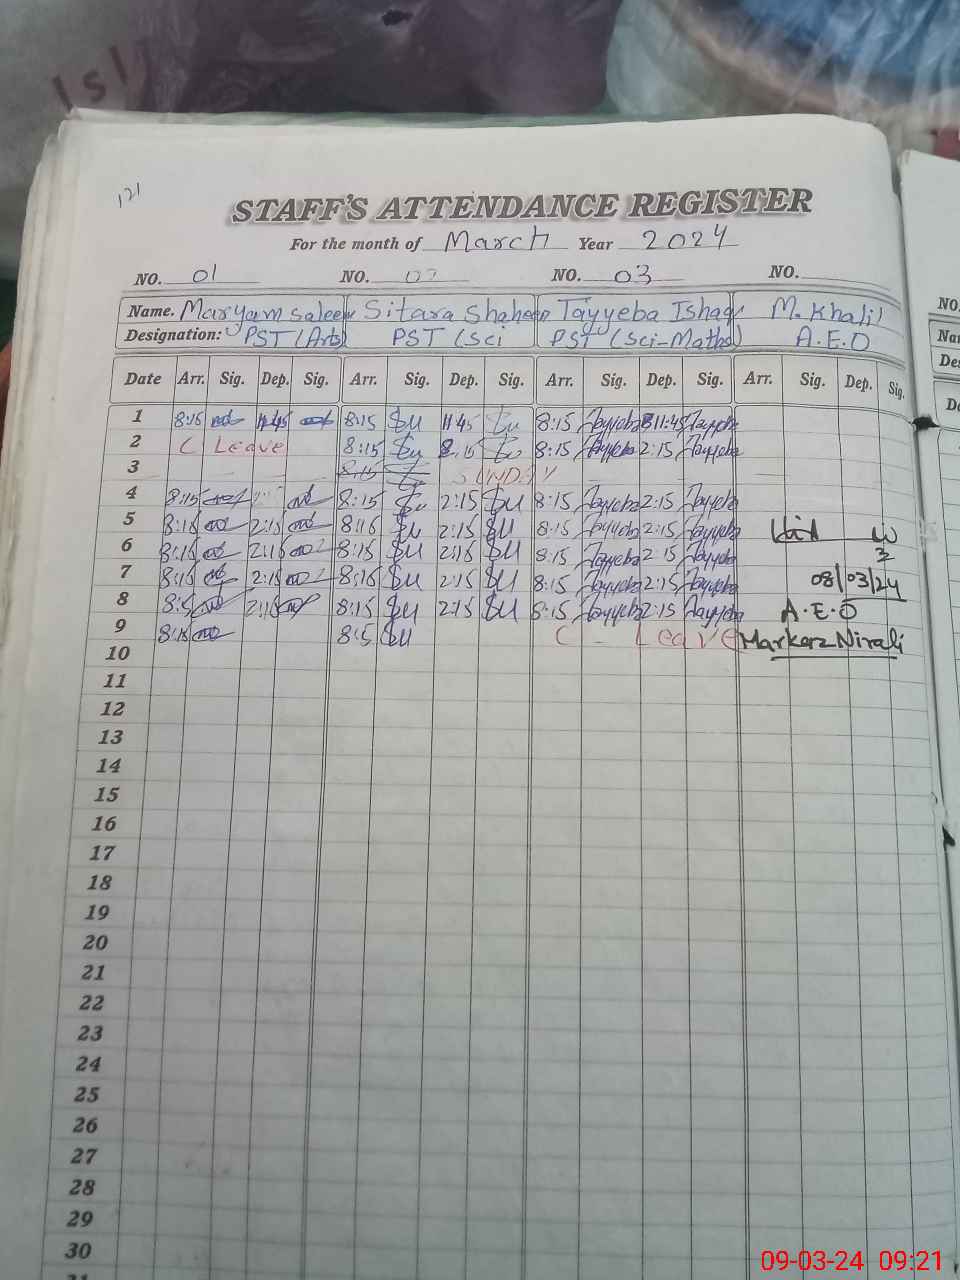 Isl
121
STAFF'S ATTENDANCE REGISTER
For the month of March Year 2024
NO. 01 NO. 02 NO. 03 NO.
Name. Maryam Saleem Sitara Shaheen Tayyeba Ishaq M. Khalil
Designation: PST (Arts) PST (Sci PST (Sci-Maths) A.E.O
Date Arr. Sig. Dep. Sig. Arr. Sig. Dep. Sig. Arr. Sig. Dep. Sig. Arr. Sig. Dep. Sig.
1 8:15 11:45 8:15 11:45 8:15 Tayyeba 11:45 Tayyeba
2 C Leave 8:15 2:15 8:15 Tayyeba 2:15 Tayyeba
3 8:15 SUNDAY
4 8:15 8:15 2:15 8:15 Tayyeba 2:15 Tayyeba
5 8:15 2:15 8:15 2:15 8:15 Tayyeba 2:15 Tayyeba
6 8:15 2:15 8:15 2:15 8:15 Tayyeba 2:15 Tayyeba
7 8:15 2:15 8:15 2:15 8:15 Tayyeba 2:15 Tayyeba 08/03/24
8 8:15 2:15 8:15 2:15 8:15 Tayyeba 2:15 Tayyeba A.E.O
9 8:15 8:5 C Leave Markaz Nirali
10
11
12
13
14
15
16
17
18
19
20
21
22
23
24
25
26
27
28
29
30
NO.
09-03-24 09:21